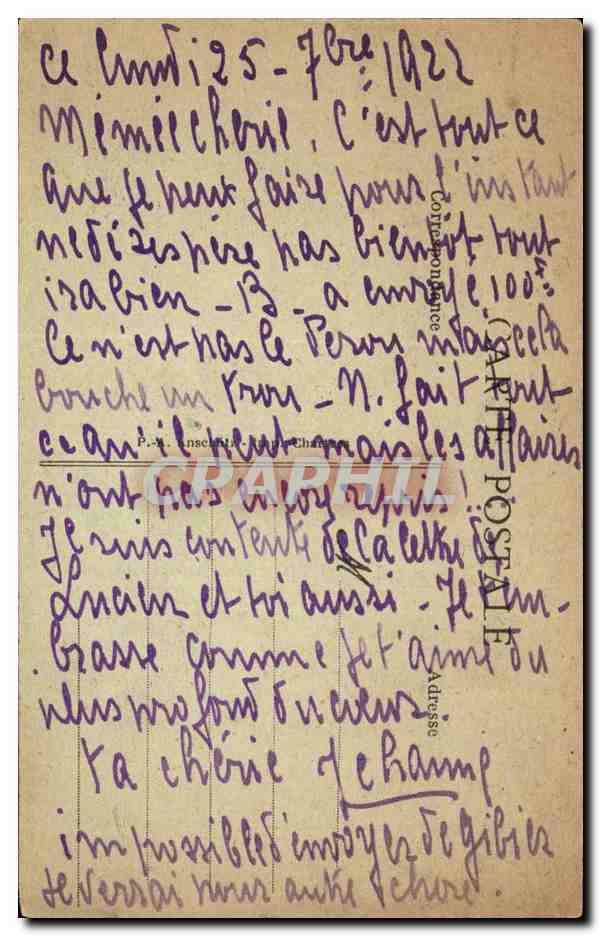 ce lundi 25 - 7bre 1922
Mémée cherie, C'est tout ce
que je peux faire pour l'instant
ne désespère pas bientôt tout
ira bien - B - a envoyé 100
Ce n'est pas le mais cela
bouche un trou - N. fait tout
ce qu'il peut mais les affaires
n'ont pas encor repris!
Je suis contente de la lettre de
Lucien et toi aussi - Je t'em-
brasse comme je t'aime du
plus profond du cœur.
ta chérie Jehanne
impossible d'envoyer de gibier
je verrai pour autre chose.
CARTE POSTALE
Correspondance
Adresse
CPAPHIL